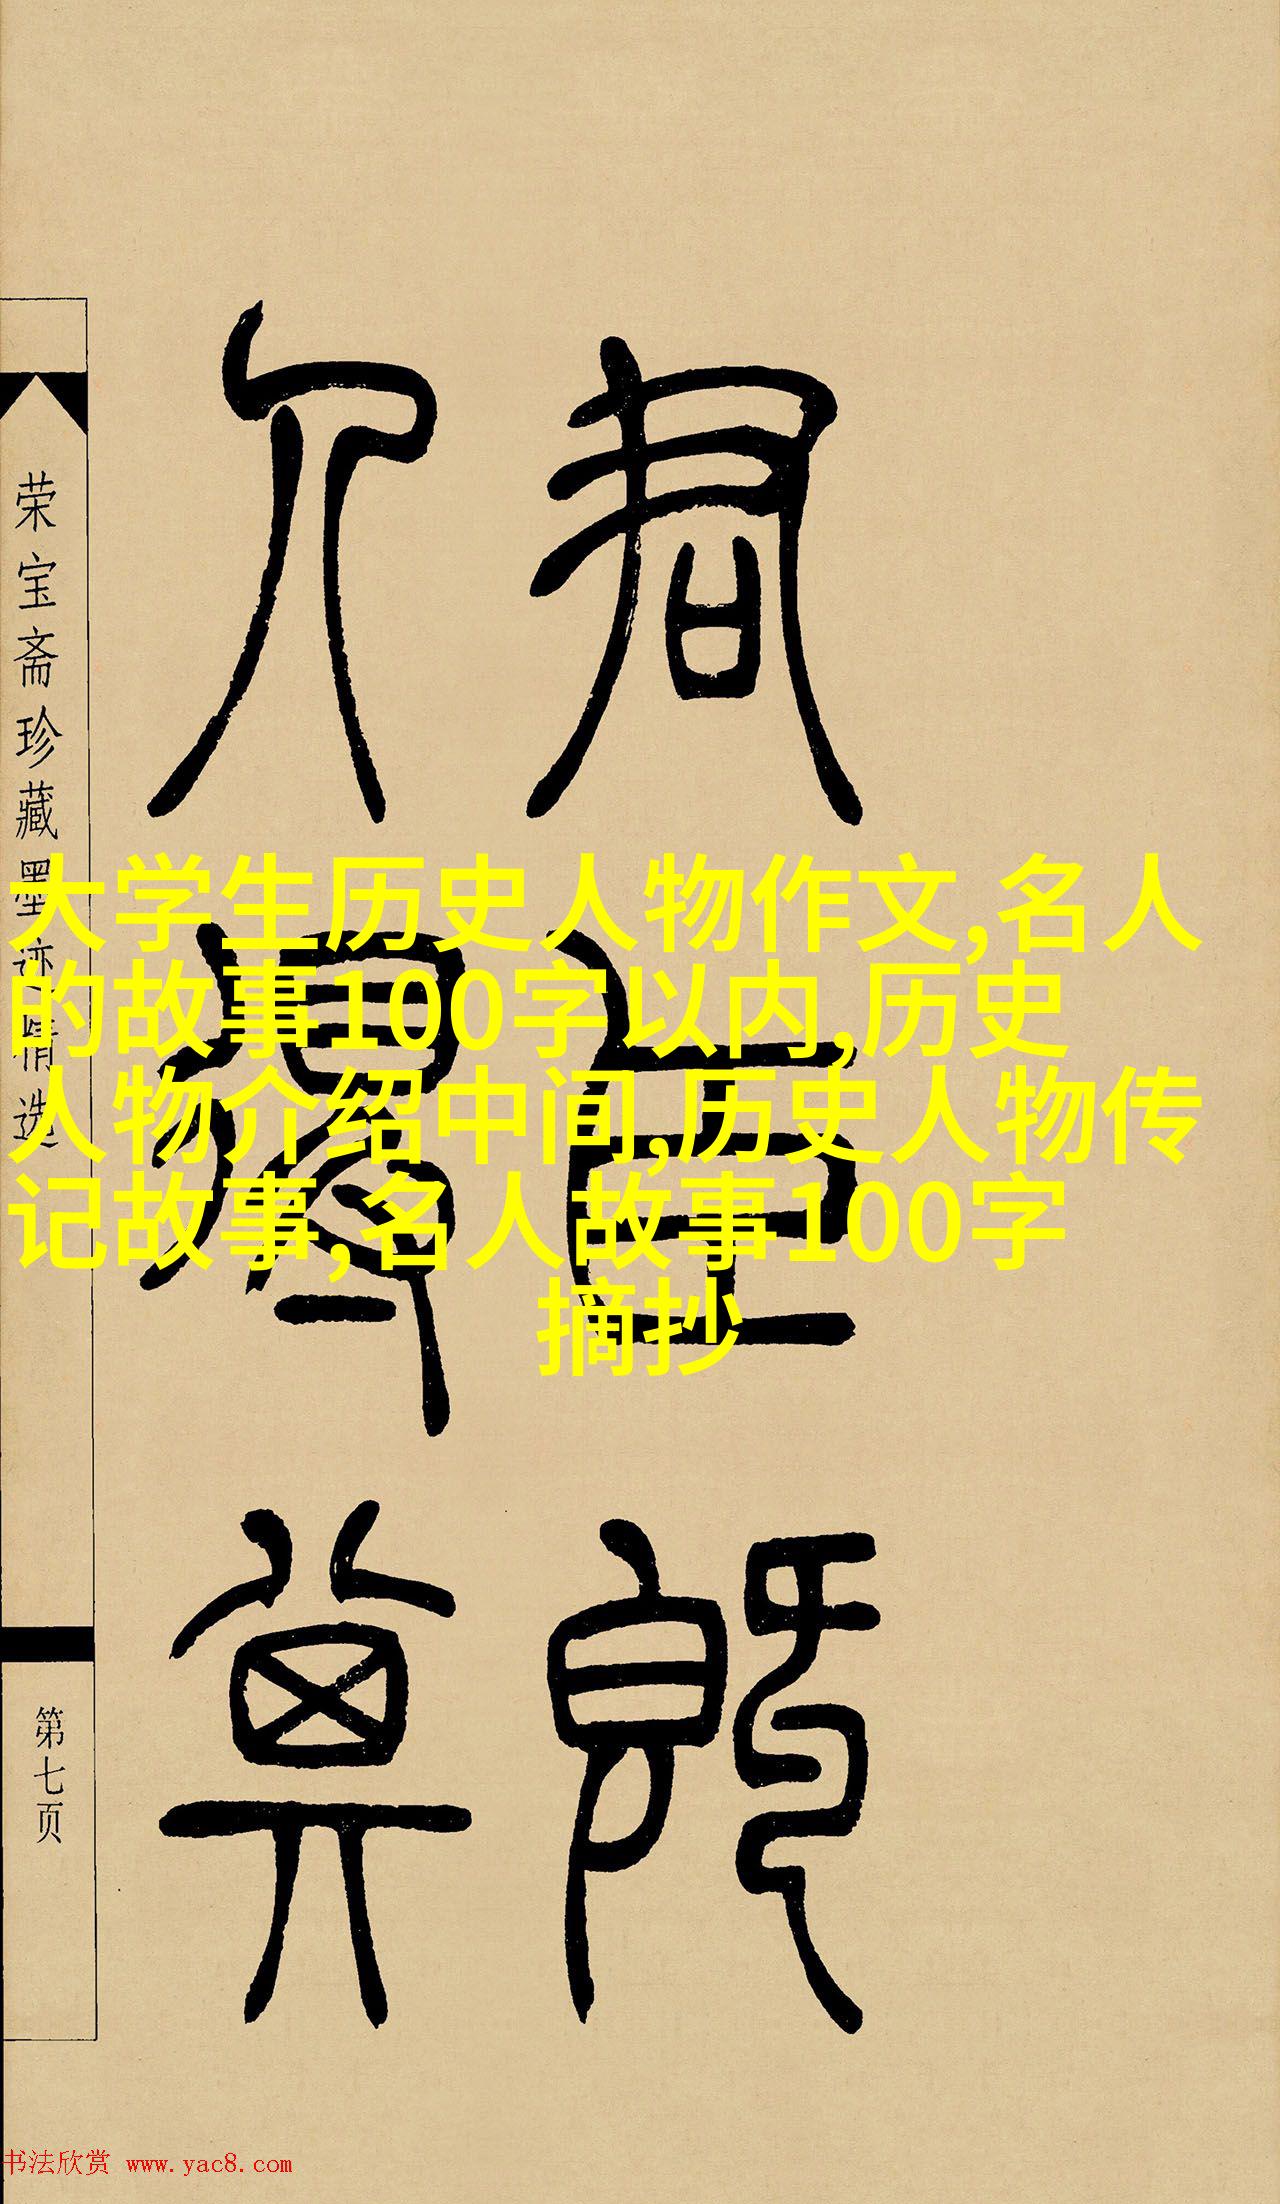 荣宝斋珍藏墨迹精选
第七页
君臣既
得其
大学生历史人物作文,名人
的故事100字以内,历史
人物介绍中间,历史人物传
记故事,名人故事100字
摘抄
书法欣赏 www.yac8.com